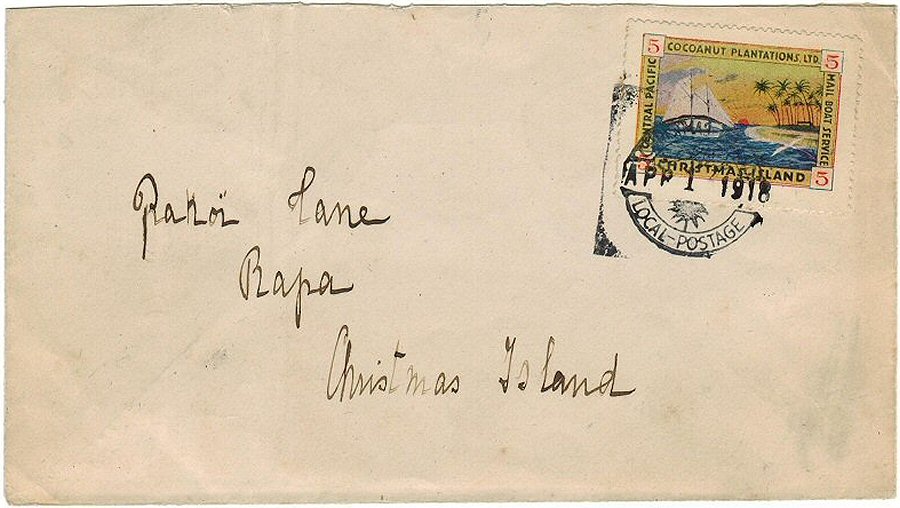 5 COCOANUT PLANTATIONS, LTD. 5
CENTRAL PACIFIC
MAIL BOAT SERVICE
5 CHRISTMAS ISLAND 5
APR 1 1918
LOCAL-POSTAGE
Rapa
Christmas Island